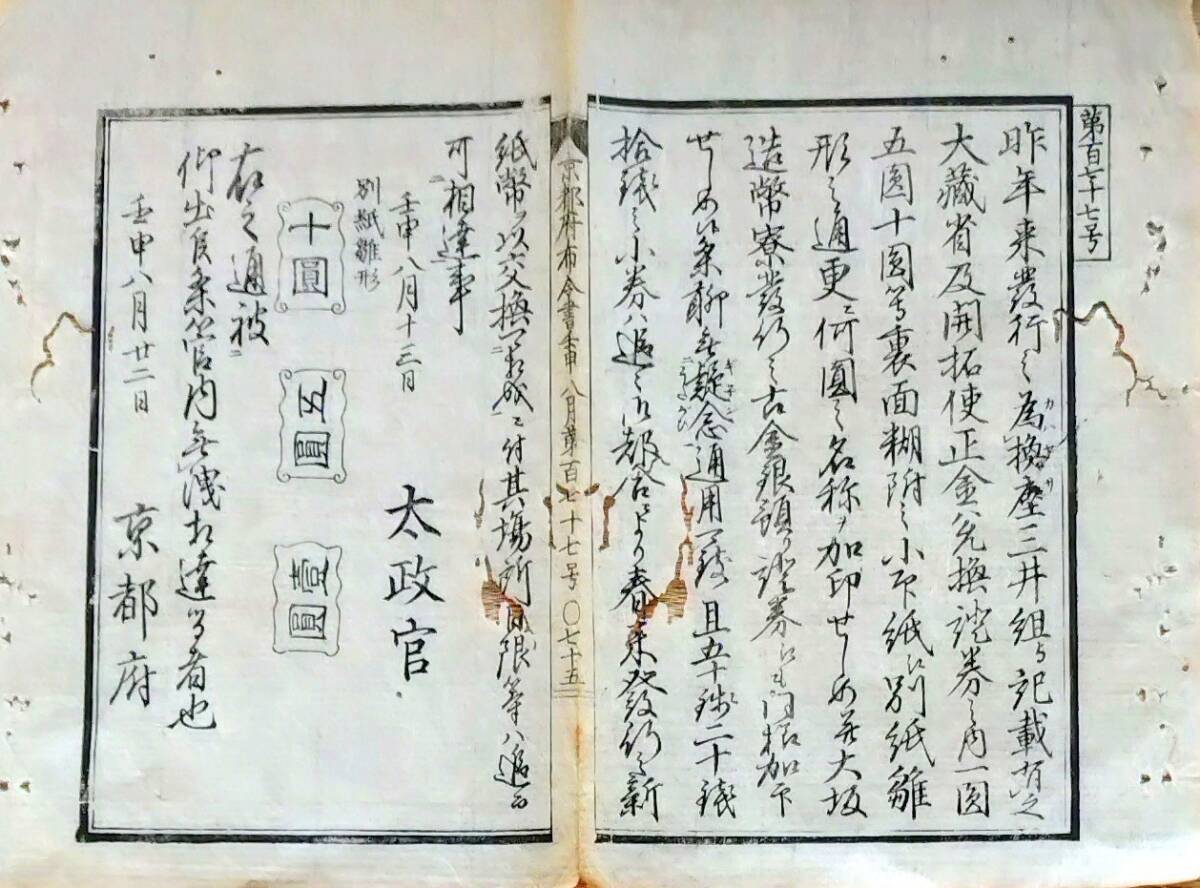 第百七十七号
昨年来発行之為換座三井組与記載有之
大蔵省及開拓使正金兌換証券之内一圓
五圓十圓等裏面糊附之小印紙江別紙雛
形之通更ニ何圓之名称ヲ加印セしめ并大坂
造幣寮発行之古金銀預り証券江も同様加印
セしめ候条聊無疑念通用可致且五十銭二十銭
拾銭之小券ハ追々御都合により春来発行之新
京都府布令書壬申八月第百七十七号〇七十五
紙幣ヲ以交換可相成ニ付其場所日限等ハ追而
可相達事
壬申八月十三日
太政官
別紙雛形
十圓
五圓
壹圓
右之通被
仰出候条管内無洩相達る者也
壬申八月廿二日
京都府